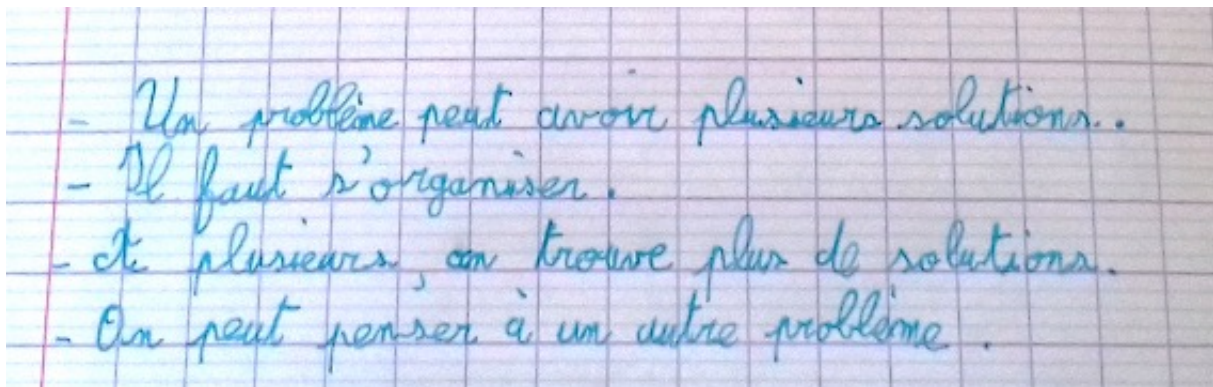 - Un problème peut avoir plusieurs solutions.
- Il faut s'organiser.
- A plusieurs, on trouve plus de solutions.
- On peut penser à un autre problème.